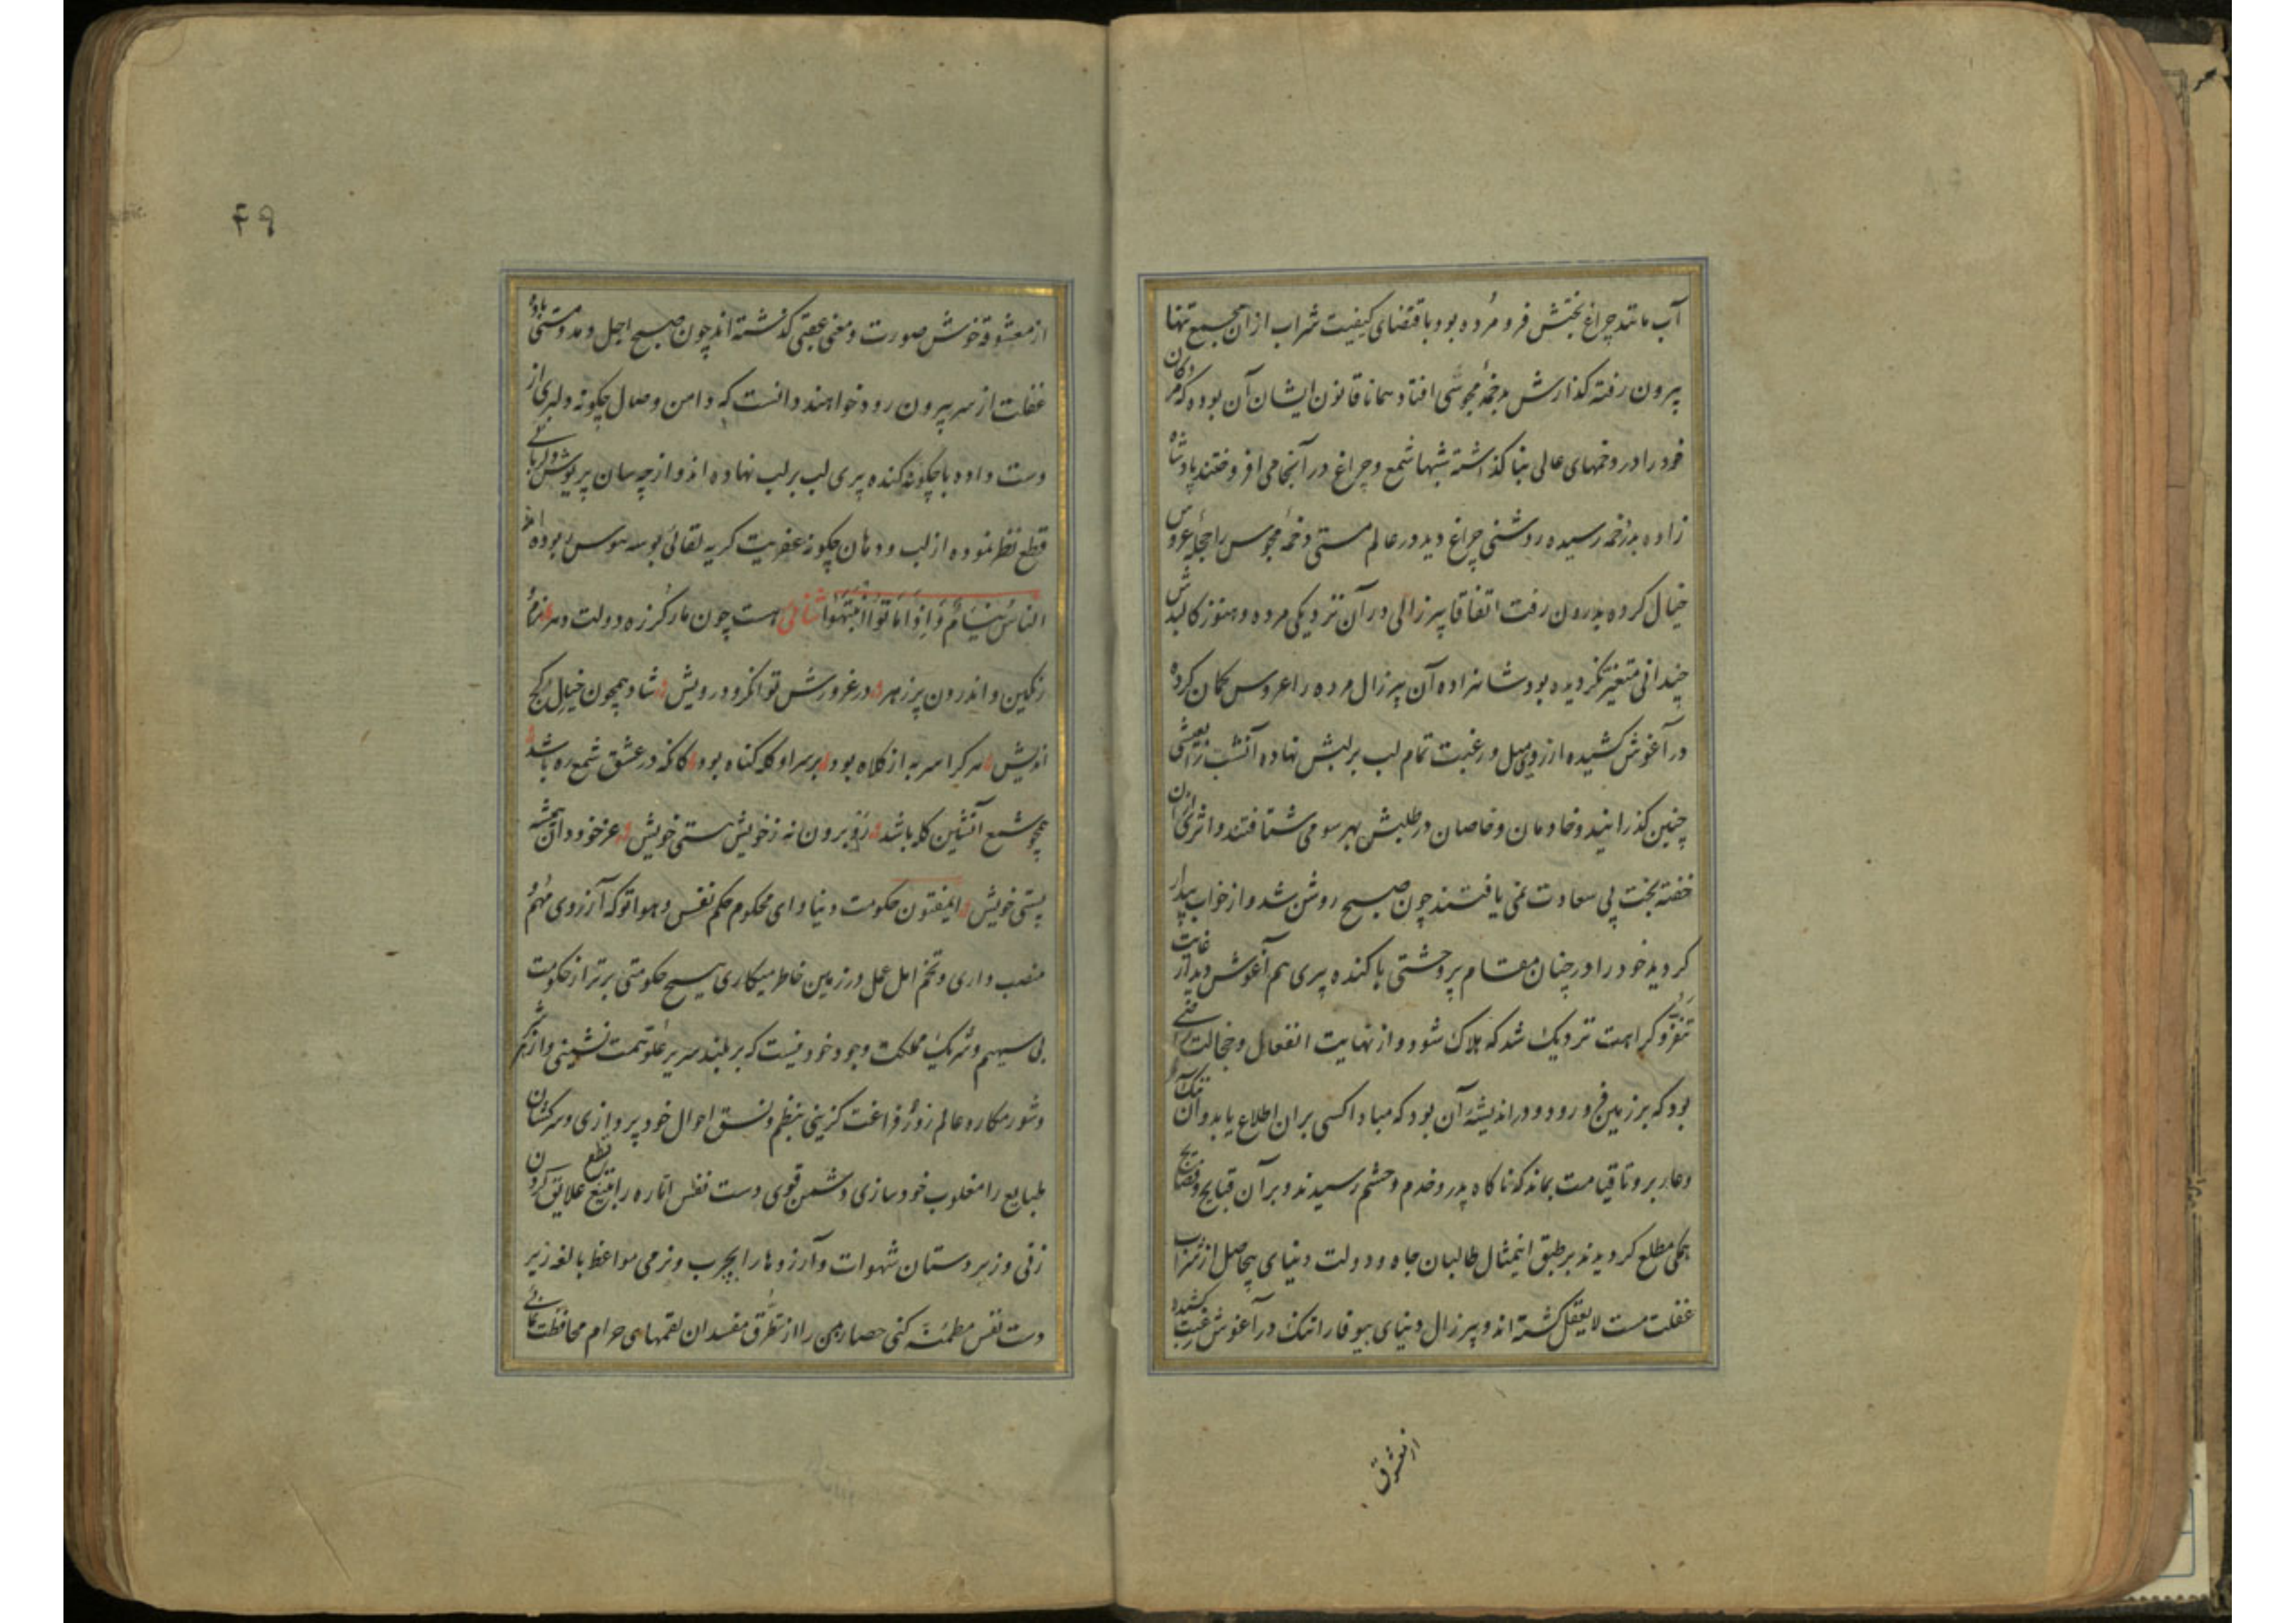 آب مانند چراغ بختش فرو مرده بود باقتضای کیفیت شراب ازان مجمع تنها
بیرون رفته گذارش بدخمهٔ مجوسی افتاد همانا قانون ایشان آن بوده که مردکان
خود را در دخمهای عالی بنا گذاشته شبها شمع و چراغ در آنجا می افروختند پادشاه
زاده بدخمه رسیده روشنی چراغ دید در عالم مستی دخمهٔ مجوس را حجلهٔ عروس
خیال کرده بدرون رفت اتفاقا پیر زالی در آن نزدیکی مرده و هنوز کالبدش
چندانی متغیر نگردیده بود شاهزاده آن پیر زال مرده را عروس گمان کرده
در آغوش کشیده از روی میل و رغبت تمام لب بر لبش نهاده آنشب را بعیشی
چنین گذرانید و خادمان و خاصان در طلبش بهر سو می شتافتند و اثری ازان
خفته بخت بی سعادت نمی یافتند چون صبح روشن شد و از خواب بیدار
کردید خود را در چنان مقام پر وحشتی با کنده پیری هم آغوش دید از غایت
تنفر و کراهت نزدیک شد که هلاک شود و از نهایت انفعال و خجالت راضی
بود که بر زمین فرو رود و در اندیشهٔ آن بود که مبادا کسی بران اطلاع یابد و آن ننک
و عار برو تا قیامت بماند که ناکاه پدر و خدم و حشم رسیدند و بر آن قبایح و فضایح
همکی مطلع کردیدند بر طبق اینمثال طالبان جاه و دولت دنیای بیحاصل از شراب
غفلت مست لایعقل کشته اند و پیر زال دنیای بیوفا را تنک در آغوش رغبت کشیده
از معشوق
۴۹
از معشوقهٔ خوش صورت و معنی عقبی کذشته اند چون صبح اجل دمد و مستی بادهٔ
غفلت از سر بیرون رود خواهند دانست که دامن وصال چکونه دلبری از
دست داده با چکونه کنده پیری لب بر لب نهاده اند و از چه سان پریوش دلربائی
قطع نظر نموده از لب و دهان چکونه عفریت کریه لقائی بوسه هوس ربوده اند
الناسُ نیامٌ وَاِذا ماتوا انتبهوا ثنائی هست چون مار کرزه دولت دهر نرم
رنکین و اندرون پر زهر در غرورش توانکر و درویش شاد همچون خیال کنج
اندیش هر کرا سر به از کلاه بود بر سر او کله کناه بود کانکه در عشق شمع ره باشد
همچو شمع آتشین کله باشد رو برون نه ز خویش هستی خویش عز خود دان همیشه
پستی خویش ایمفتون حکومت دنیا و ای محکوم حکم نفس و هوا تو که آرزوی مهم و
منصب داری و تخم امل عمل در زمین خاطر میکاری هیچ حکومتی برتر از حکومت
بی سهیم و شریک مملکت وجود خود نیست که بر بلند سریر علو همت نشینی و از شر
و شور مکاره عالم زور فراغت کزینی بنظم و نسق احوال خود پردازی و سرکشان
طبایع را مغلوب خود سازی دشمن قوی دست نفس اماره را بتیغ قطع علایق کردن
زنی و زبر دستان شهوات و آرزوها را بچرب و نرمی مواعظ بالغه زیر
دست نفس مطمئنه کنی حصار من را از تطرق مفسدان لقمهای حرام محافظت نمائی